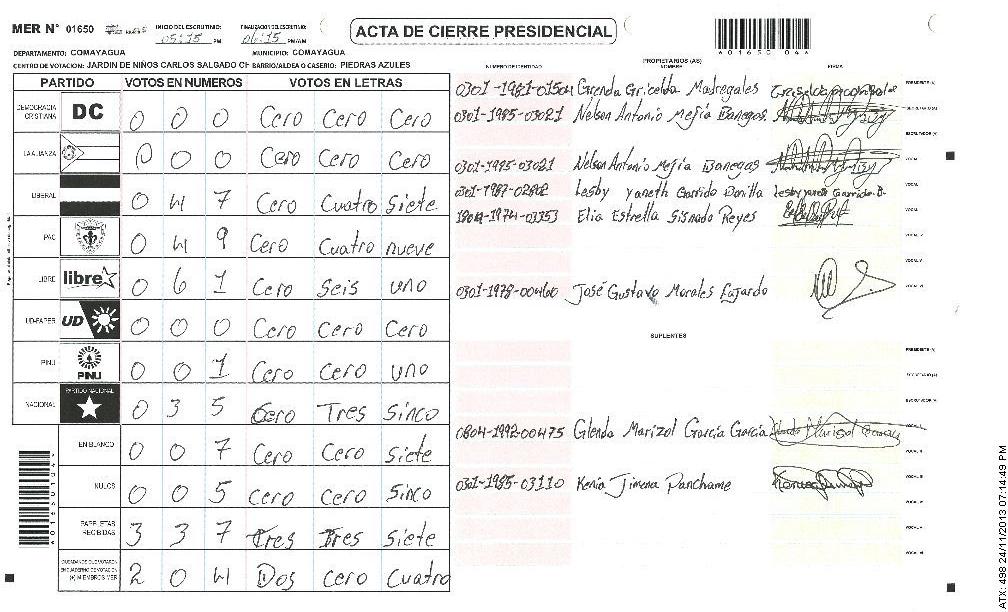 MER N° 01650 INICIO DEL ESCRUTINIO: 05:15 PM FINALIZACION DEL ESCRUTINIO: 06:15 PM/AM
ACTA DE CIERRE PRESIDENCIAL
DEPARTAMENTO: COMAYAGUA MUNICIPIO: COMAYAGUA
CENTRO DE VOTACION: JARDIN DE NIÑOS CARLOS SALGADO CH BARRIO/ALDEA O CASERIO: PIEDRAS AZULES
PARTIDO VOTOS EN NUMEROS VOTOS EN LETRAS
DEMOCRACIA CRISTIANA DC 0 0 0 Cero Cero Cero
LA ALIANZA 0 0 0 Cero Cero Cero
LIBERAL 0 4 7 Cero Cuatro Siete
PAC 0 4 9 Cero Cuatro nueve
LIBRE libre 0 6 1 Cero Seis uno
UD-FAPER UD 0 0 0 Cero Cero Cero
PINU PINU 0 0 1 Cero Cero uno
NACIONAL PARTIDO NACIONAL 0 3 5 Cero Tres Sinco
EN BLANCO 0 0 7 Cero Cero Siete
NULOS 0 0 5 Cero Cero Sinco
PAPELETAS RECIBIDAS 3 3 7 Tres Tres Siete
CIUDADANOS QUE VOTARON EN CUADERNO DE VOTACION (+) MIEMBROS MER 2 0 4 Dos cero Cuatro
A01650 04A
PROPIETARIOS (AS)
NUMERO DE IDENTIDAD NOMBRE FIRMA
0301-1981-01504 Grenda Gricelda Madregales PRESIDENTE (A)
0301-1985-03021 Nelson Antonio Mejía Banegas SECRETARIO (A)
ESCRUTADOR (A)
0301-1985-03021 Nelson Antonio Mejía Banegas VOCAL
Lesby Yaneth Garrido Bonilla Lesby yaneth Garrido B. VOCAL
1804-1974-03353 Elia Estrella Sisnado Reyes VOCAL
VOCAL
VOCAL
0301-1978-00460 José Gustavo Morales Fajardo VOCAL
SUPLENTES
PRESIDENTE (A)
SECRETARIO (A)
ESCRUTADOR (A)
0804-1992-00475 Glenda Marizol García García VOCAL
VOCAL
0301-1985-03110 Kenia Jimena Panchame VOCAL
VOCAL
VOCAL
VOCAL
ATX: 498 24/11/2013 07:14:49 PM